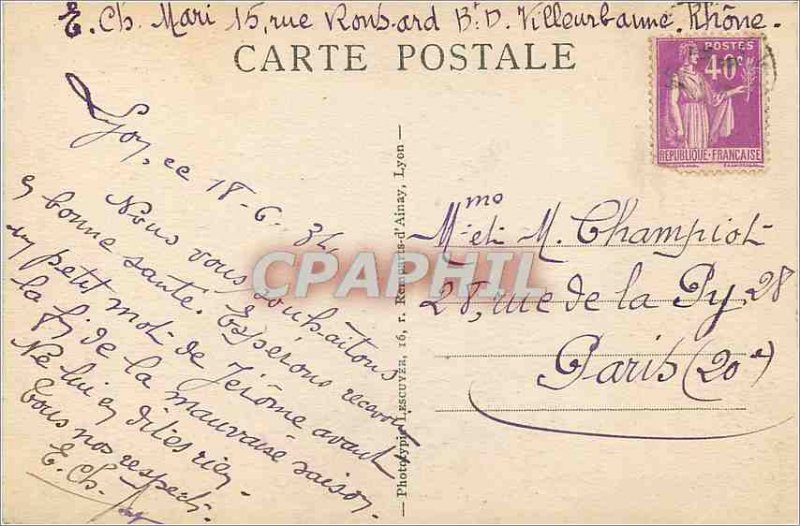 E. Ch. Mari 15, rue Ronsard Bt D. Villeurbanne. Rhône.
CARTE POSTALE
POSTES
40c
REPUBLIQUE FRANÇAISE
Lyon, ce 18-6-34
Nous vous souhaitons
en bonne santé. Espérons recevoir
un petit mot de Jérôme avant
la fin de la mauvaise saison.
Ne lui en dites rien.
Tous nos respects.
E. Ch.
Phototypie LESCUYER, 16, r. Remparts-d'Ainay, Lyon
CPAPHIL
Mme et M. Champiot
28, rue de la Py, 28
Paris (20e)